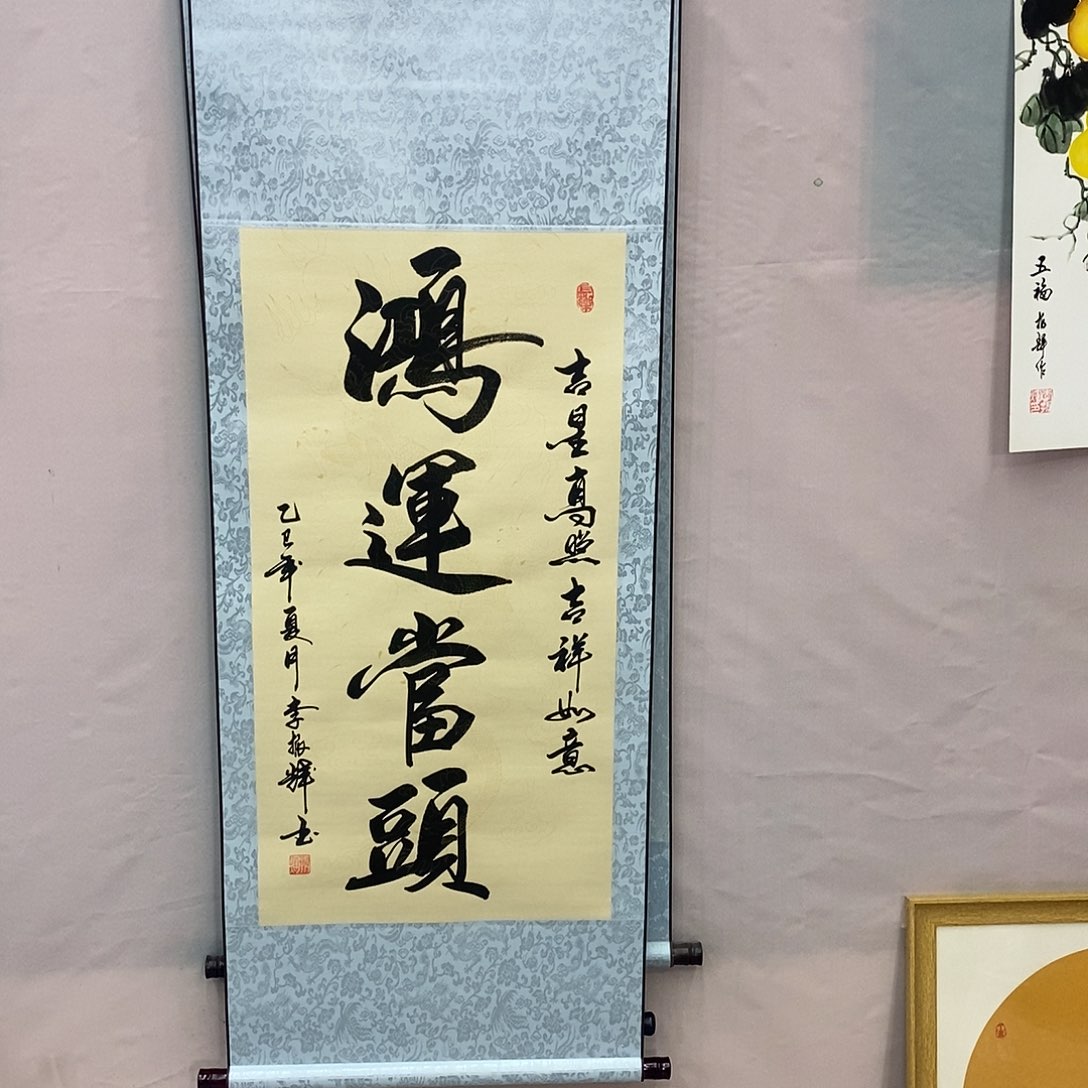 鴻運當頭
吉星高照吉祥如意
乙巳年夏月李振輝书
五福 振輝作